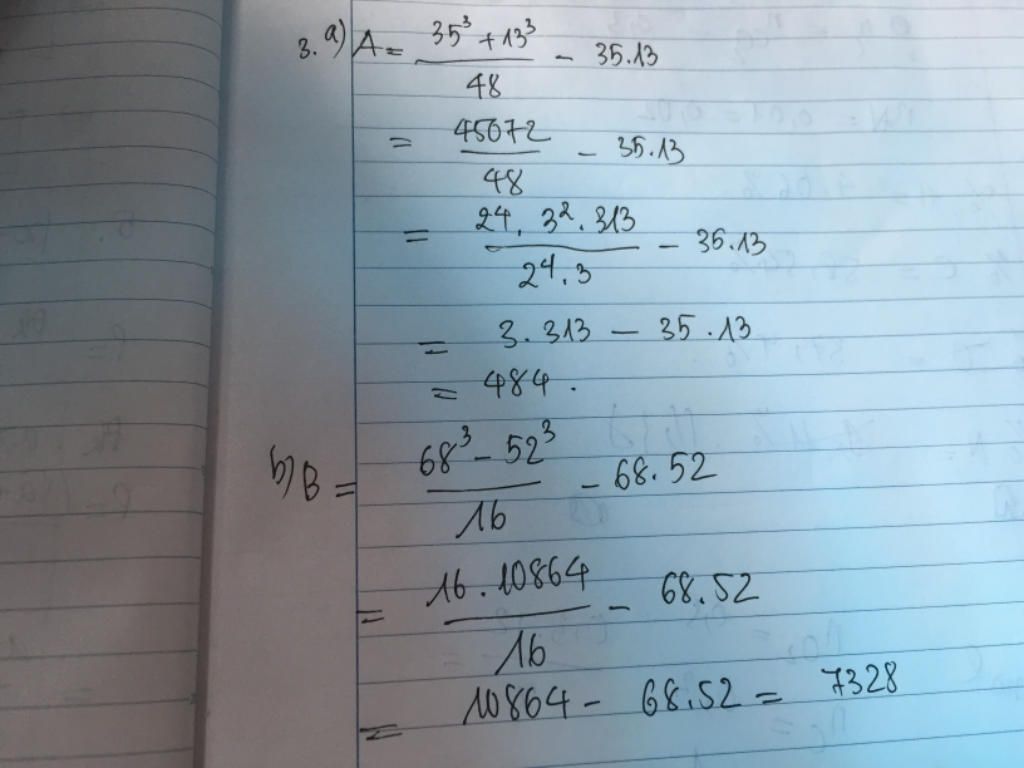 3. a) A = \frac{35³ + 13³}{48} - 35.13
= \frac{45072}{48} - 35.13
= \frac{2⁴. 3². 313}{2⁴. 3} - 35.13
= 3. 313 - 35.13
= 484.
b) B = \frac{68³ - 52³}{16} - 68.52
= \frac{16. 10864}{16} - 68.52
= 10864 - 68.52 = 7328